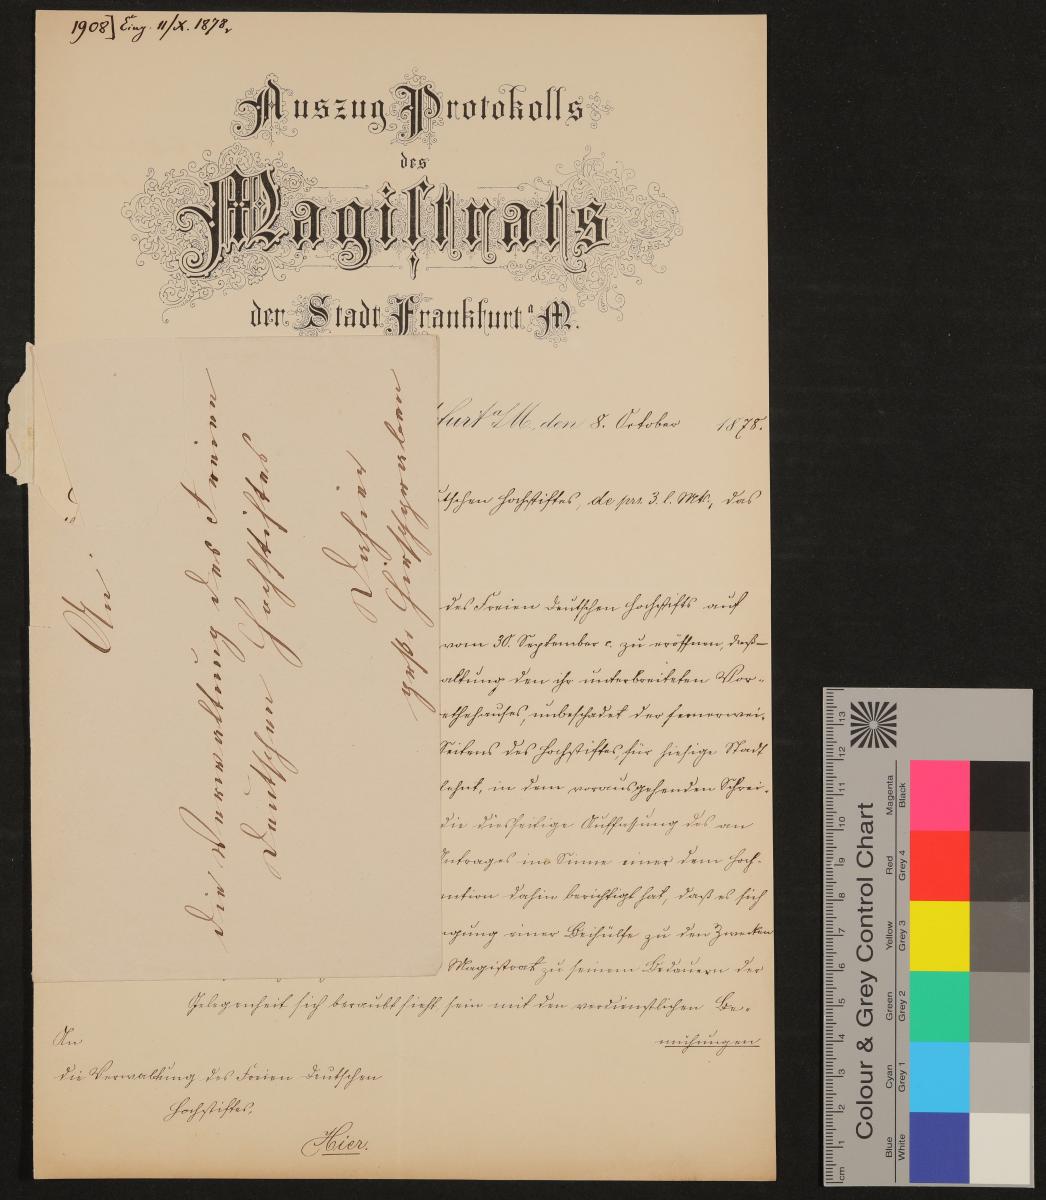 1908] Eing. 11/X. 1878.
Auszug Protokolls
des
Magistrats
der Stadt Frankfurt a M.
furt a/M, den 8. October 1878.
utschen Hochstiftes, de prs. 3. l. Mts., das
des Freien Deutschen Hochstifts auf
vom 30. September c. zu eröffnen, daß
altung den ihr unterbreiteten Vor-
ethehauses, unbeschadet der fernerwei-
Seitens des Hochstiftes, für hiesige Stadt
lehnt, in dem vorausgehenden Schrei-
die diesseitige Auffassung des an
Antrages im Sinne einer dem Hoch-
ention dahin berichtigt hat, daß es sich
gung einer Beihülfe zu den Zwecken
Magistrat zu seinem Bedauern der
Gelegenheit sich beraubt sieht, sein mit den verdienstlichen Be-
mühungen
An
die Verwaltung des Freien Deutschen
Hochstiftes,
Hier.
An
die Verwaltung des Freien
Deutschen Hochstiftes
Dahier
große Hirschgraben
Colour & Grey Control Chart
Blue Cyan Green Yellow Red Magenta
White Grey 1 Grey 2 Grey 3 Grey 4 Black
cm 1 2 3 4 5 6 7 8 9 10 11 12 13